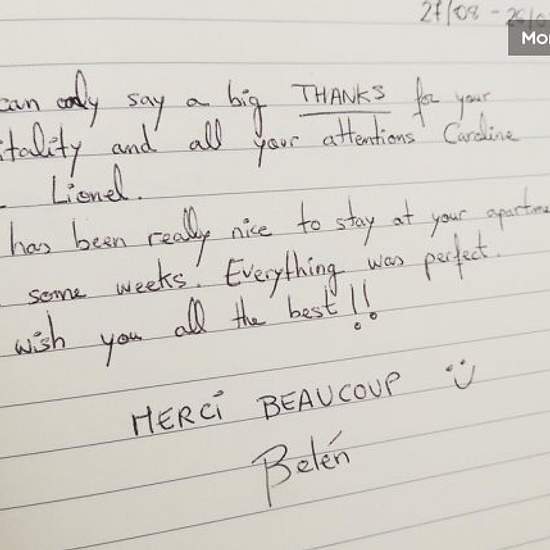 27/08 - 26/0
Mo
can only say a big THANKS for your
itality and all your attentions Caroline
Lionel.
has been really nice to stay at your apartme
some weeks. Everything was perfect.
wish you all the best!!
MERCi BEAUCOUP :)
Belén